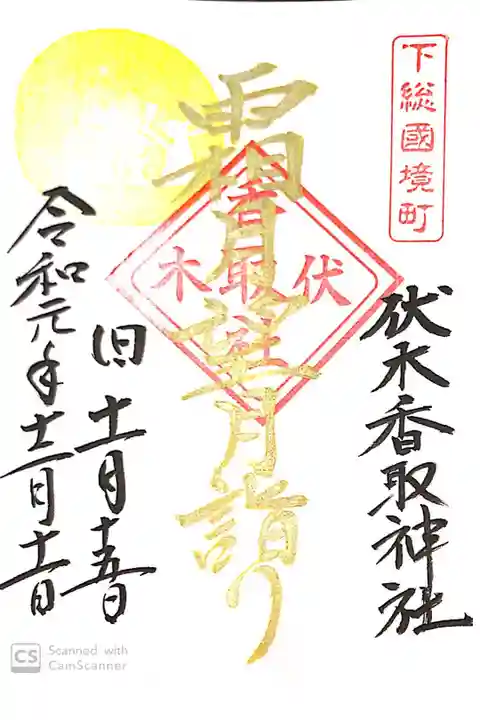 下総國境町
伏木香取神社
霜月望月詣り
伏木
香取社
旧十一月十五日
令和元年十二月十一日
CS Scanned with
CamScanner